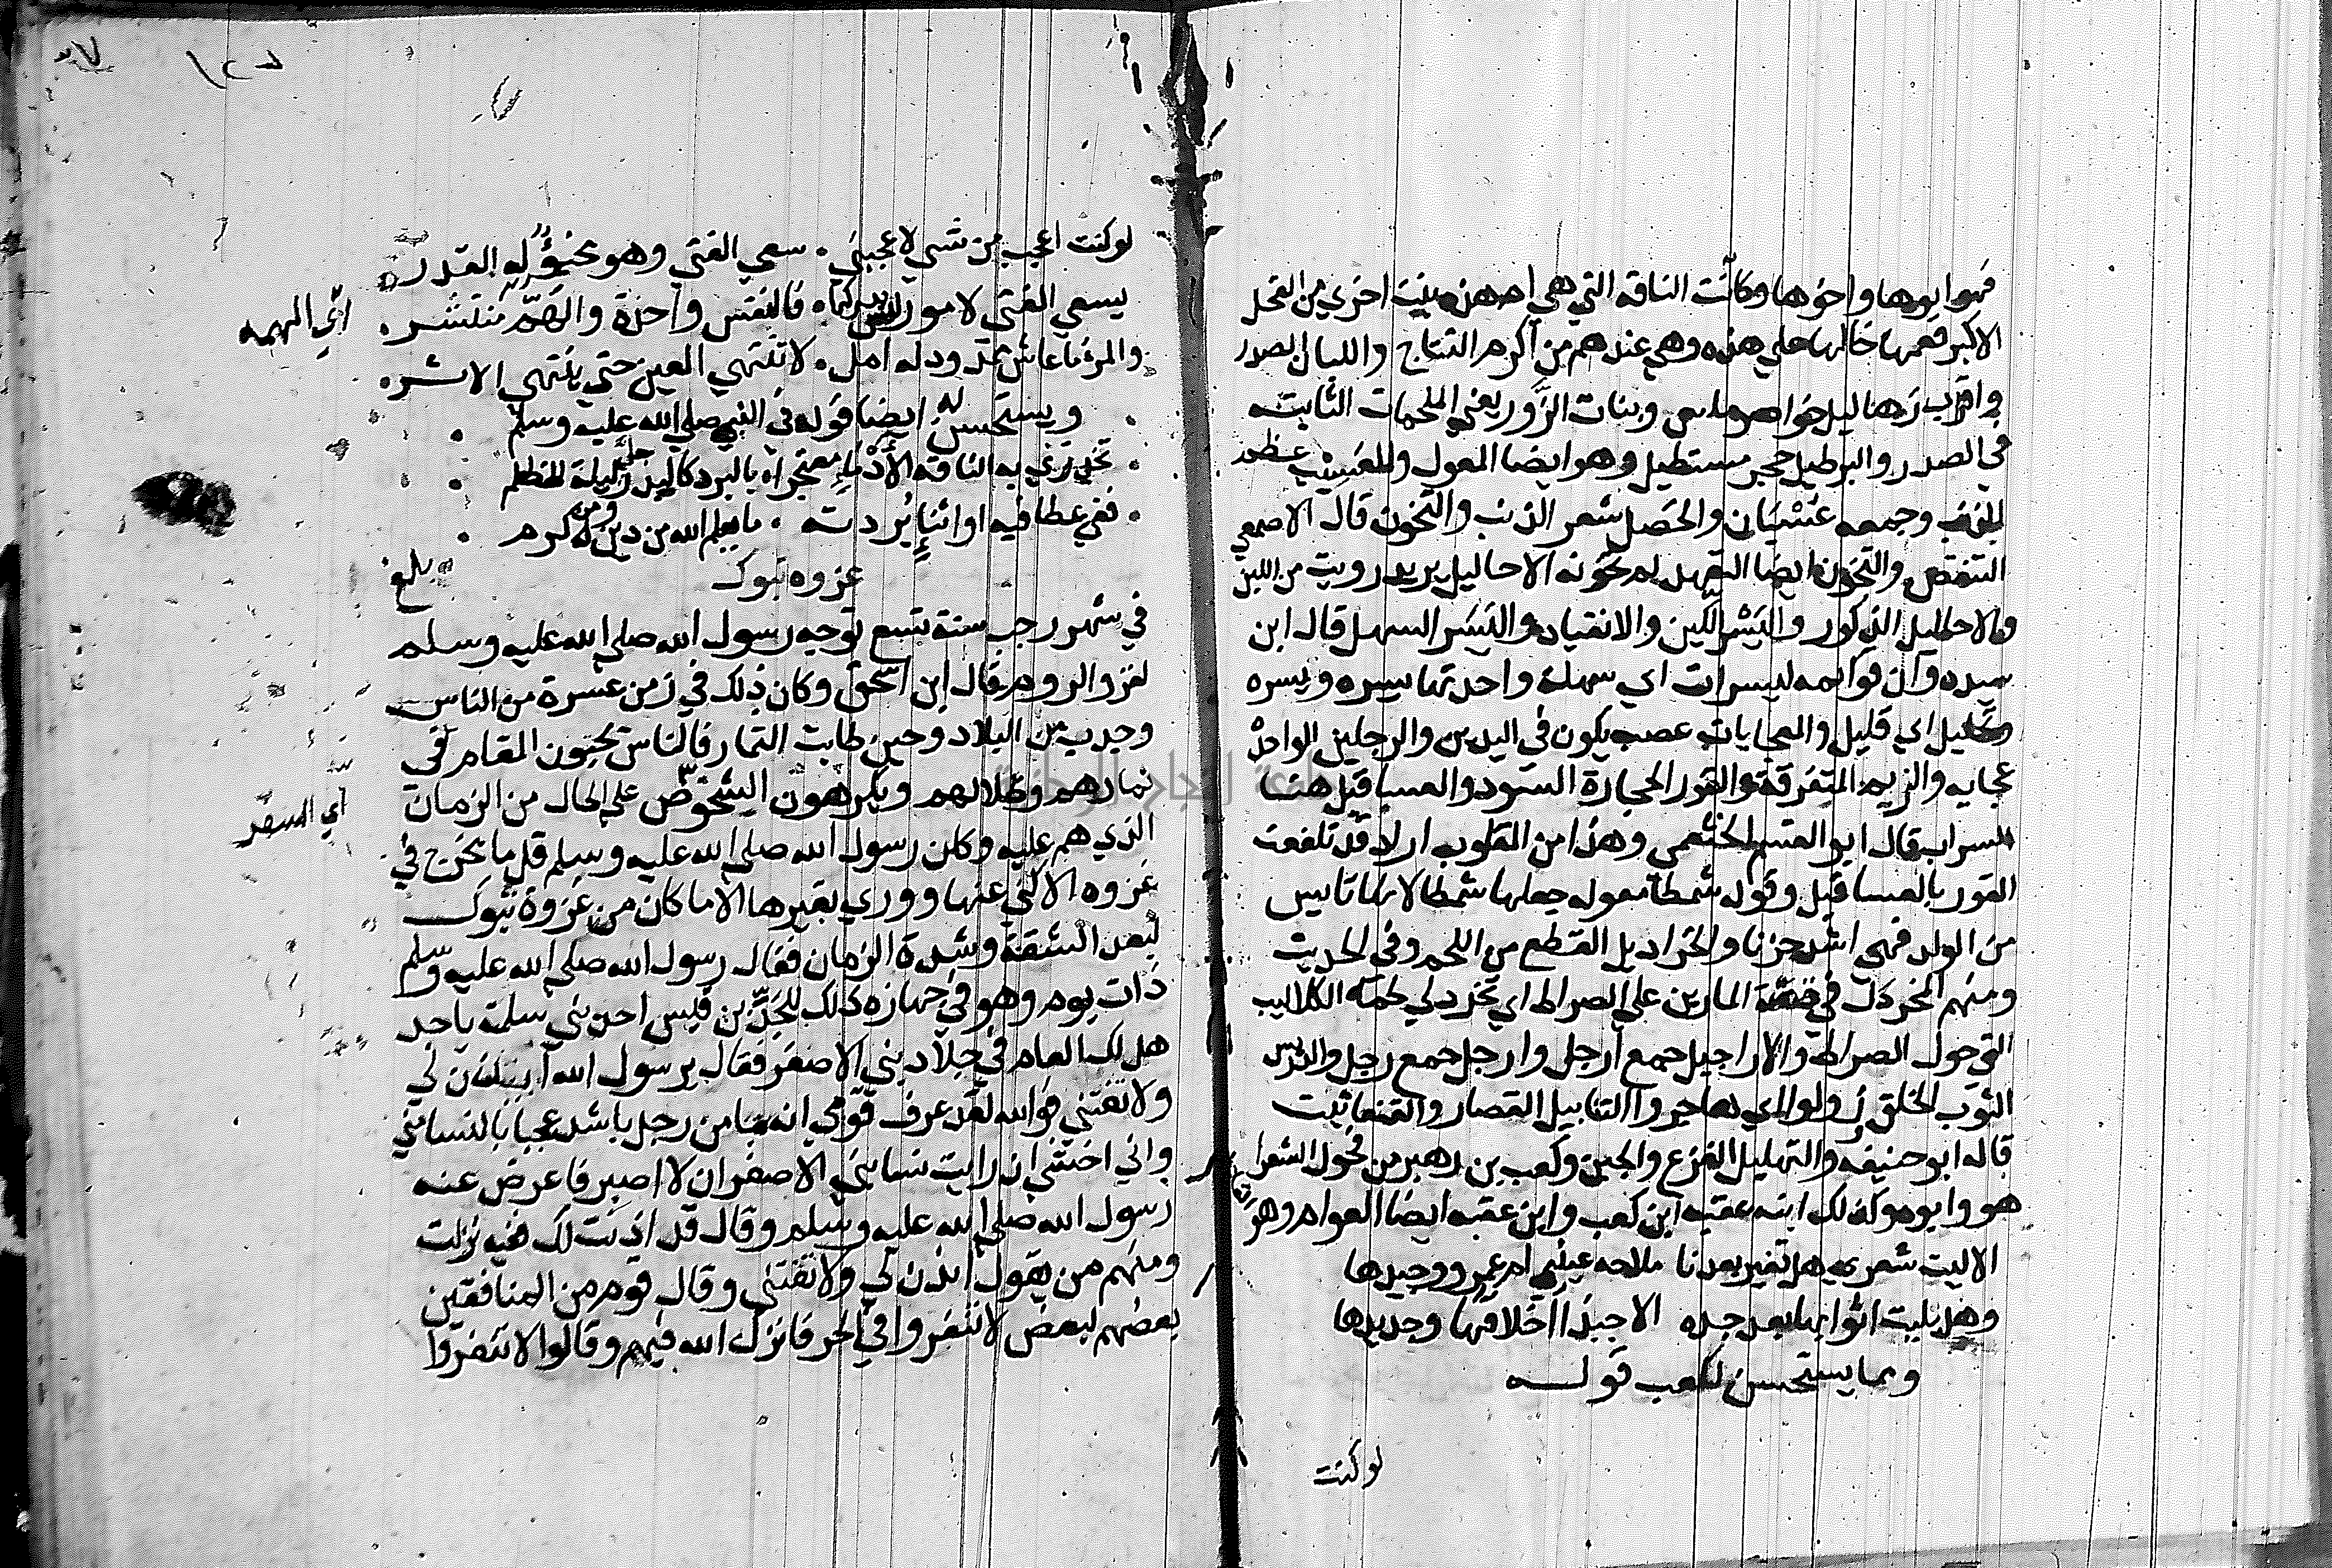 فهو ابوها واخوها وكانت الناقة التي هي ام هذه بنت اخري من الفحل
الاكبر فعمها خالها علي هذه وهي عندهم من اكرم النتاج واللبان الصدر
واقراب زهاليل خواصر ملس وبنات الزور يعني اللحمات الثابته
في الصدر والبرطيل حجر مستطيل وهو ايضا المعول والعسيب عظم
الذنب وجمعه عسبان والخصل شعر الذنب والتخون قال الاصمعي
التنقص والتخون ايضا التعهد لم تخونه الاحاليل يريد رويت من اللبن
والاحاليل الذكور واليسر اللين والانقياد واليسر السهل قال ابن
سيده وان قوائمه ليسرات اي سهلة واحدتها يسره ويسره
وتحليل اي قليل والعجايات عصب يكون في اليدين والرجلين الواحدة
عجايه والزيم المتفرقة والقور الحجارة السود والعساقيل هنا
السراب قال ابو القسم الخثعمي وهذا من المقلوب اراد قد تلفعت
القور بالعساقيل وقوله شمطا معوله جعلها شمطا لانها تايس
من الولد فهي اشد حزنا والخراديل القطع من اللحم وفي الحديث
ومنهم المخردل في صفة المارين علي الصراط اي تخردل لحمه الكلاليب
التي حول الصراط والاراجيل جمع ارجل وارجل جمع رجل والدريس
الثوب الخلق زولوا اي هاجروا التنابيل القصار والقفعا نبت
قاله ابو حنيفه والتهليل الفزع والجبن وكعب بن زهير من فحول الشعرا
هو وابوه وكذلك ابنه عقبه ابن كعب وابن عقبه ايضا العوام وهو
الا ليت شعري هل تغير بعدنا ملاحه عيني ام عمرو وجيدها
وهل بليت اثوابها بعد جده الا حبذا اخلاقها وجديدها
ومما يستحسن لكعب قوله
لو كنت
لو كنت اعجب من شي لاعجبني . سعي الفتي وهو مخبؤ له القدر
يسعي الفتي لامور ليس يدركها . فالنفس واحدة والهم منتشر .
اي الهمه
والمرء ما عاش ممدود له امل . لا تنتهي العين حتي ينتهي الاثر .
ويستحسن له ايضا قوله في النبي صلي الله عليه وسلم
تخدي به الناقه الادماء معتجرا . بالبرد كالبدر جلي ليلة الظلم
ففي عطافيه او اثناء بردته . ما يعلم الله من دين ومن كرم
بلغ
غزوه تبوك
في شهر رجب سنة تسع توجه رسول الله صلي الله عليه وسلم
لغزو الروم قال ابن اسحق وكان ذلك في زمن عسرة من الناس
وجدب من البلاد وحين طابت الثمار فالناس يحبون المقام في
ثمارهم وظلالهم ويكرهون الشخوص علي الحال من الزمان
اي السفر
الذي هم عليه وكان رسول الله صلي الله عليه وسلم قل ما يخرج في
غزوه الا كني عنها ووري بغيرها الا ما كان من غزوة تبوك
لبعد الشقة وشدة الزمان فقال رسول الله صلي الله عليه وسلم
ذات يوم وهو في جهازه ذلك للجد بن قيس احد بني سلمة يا جد
هل لك العام في جلاد بني الاصفر فقال يرسول الله ايذن لي
ولا تفتني فوالله لقد عرف قومي انه ما من رجل باشد عجبا بالنسا مني
واني اخشي ان رايت نسا بني الاصفر ان لا اصبر فاعرض عنه
رسول الله صلي الله عليه وسلم وقال قد اذنت لك ففيه نزلت
ومنهم من يقول ايذن لي ولا تفتني وقال قوم من المنافقين
بعضهم لبعض لا تنفروا في الحر فانزل الله فيهم وقالوا لا تنفروا